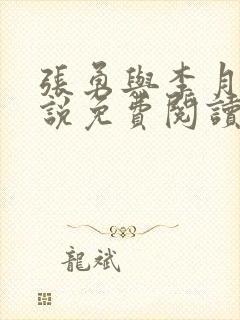 張勇與李月
說免費閱讀
龍斌